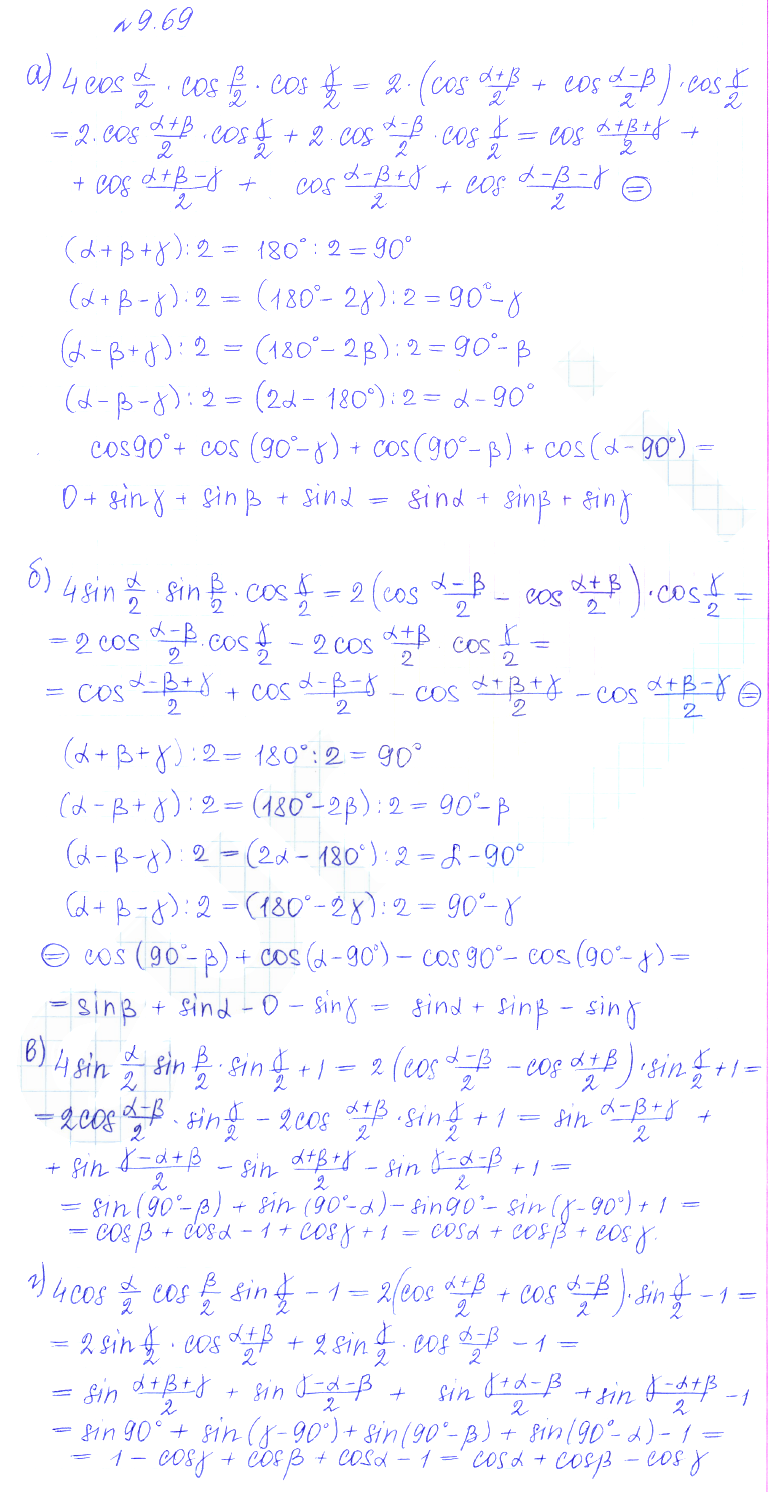 №9.69
а) 4cos α/2 · cos β/2 · cos γ/2 = 2·(cos (α+β)/2 + cos (α−β)/2)·cos γ/2
= 2·cos (α+β)/2 · cos γ/2 + 2·cos (α−β)/2 · cos γ/2 = cos (α+β+γ)/2 +
+ cos (α+β−γ)/2 + cos (α−β+γ)/2 + cos (α−β−γ)/2 ⊜
(α+β+γ):2 = 180°:2 = 90°
(α+β−γ):2 = (180°−2γ):2 = 90°−γ
(α−β+γ):2 = (180°−2β):2 = 90°−β
(α−β−γ):2 = (2α−180°):2 = α−90°
cos90° + cos(90°−γ) + cos(90°−β) + cos(α−90°) =
0 + sinγ + sinβ + sinα = sinα + sinβ + sinγ
б) 4sin α/2 · sin β/2 · cos γ/2 = 2(cos (α−β)/2 − cos (α+β)/2)·cos γ/2 =
= 2cos (α−β)/2 · cos γ/2 − 2cos (α+β)/2 cos γ/2 =
= cos (α−β+γ)/2 + cos (α−β−γ)/2 − cos (α+β+γ)/2 − cos (α+β−γ)/2 ⊜
(α+β+γ):2 = 180°:2 = 90°
(α−β+γ):2 = (180°−2β):2 = 90°−β
(α−β−γ):2 = (2α−180°):2 = α−90°
(α+β−γ):2 = (180°−2γ):2 = 90°−γ
⊜ cos(90°−β) + cos(α−90°) − cos90° − cos(90°−γ) =
= sinβ + sinα − 0 − sinγ = sinα + sinβ − sinγ
в) 4sin α/2 sin β/2 · sin γ/2 + 1 = 2(cos (α−β)/2 − cos (α+β)/2)·sin γ/2 + 1 =
= 2cos (α−β)/2 · sin γ/2 − 2cos (α+β)/2 · sin γ/2 + 1 = sin (α−β+γ)/2 +
+ sin (γ−α+β)/2 − sin (α+β+γ)/2 − sin (γ−α−β)/2 + 1 =
= sin(90°−β) + sin(90°−α) − sin90° − sin(γ−90°) + 1 =
= cosβ + cosα − 1 + cosγ + 1 = cosα + cosβ + cosγ.
г) 4cos α/2 cos β/2 sin γ/2 − 1 = 2(cos (α+β)/2 + cos (α−β)/2)·sin γ/2 − 1 =
= 2sin γ/2 · cos (α+β)/2 + 2sin γ/2 · cos (α−β)/2 − 1 =
= sin (α+β+γ)/2 + sin (γ−α−β)/2 + sin (γ+α−β)/2 + sin (γ−α+β)/2 − 1
= sin90° + sin(γ−90°) + sin(90°−β) + sin(90°−α) − 1 =
= 1 − cosγ + cosβ + cosα − 1 = cosα + cosβ − cosγ